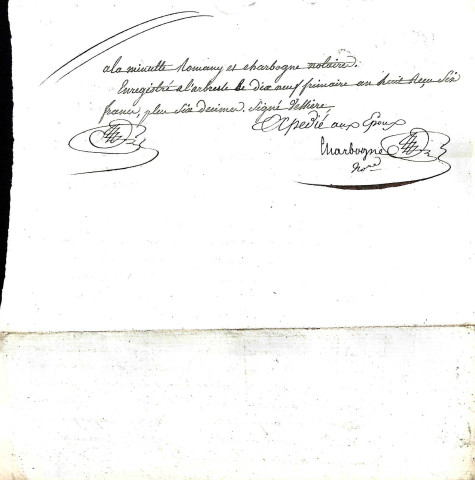 a la minutte Romany et charbogne notaire.
Enregistré a l'arbresle le dix neuf frimaire an huit Reçu Six
francs, plus Six decimes. Signé
Expedié aux Epoux
Charbogne
No.re